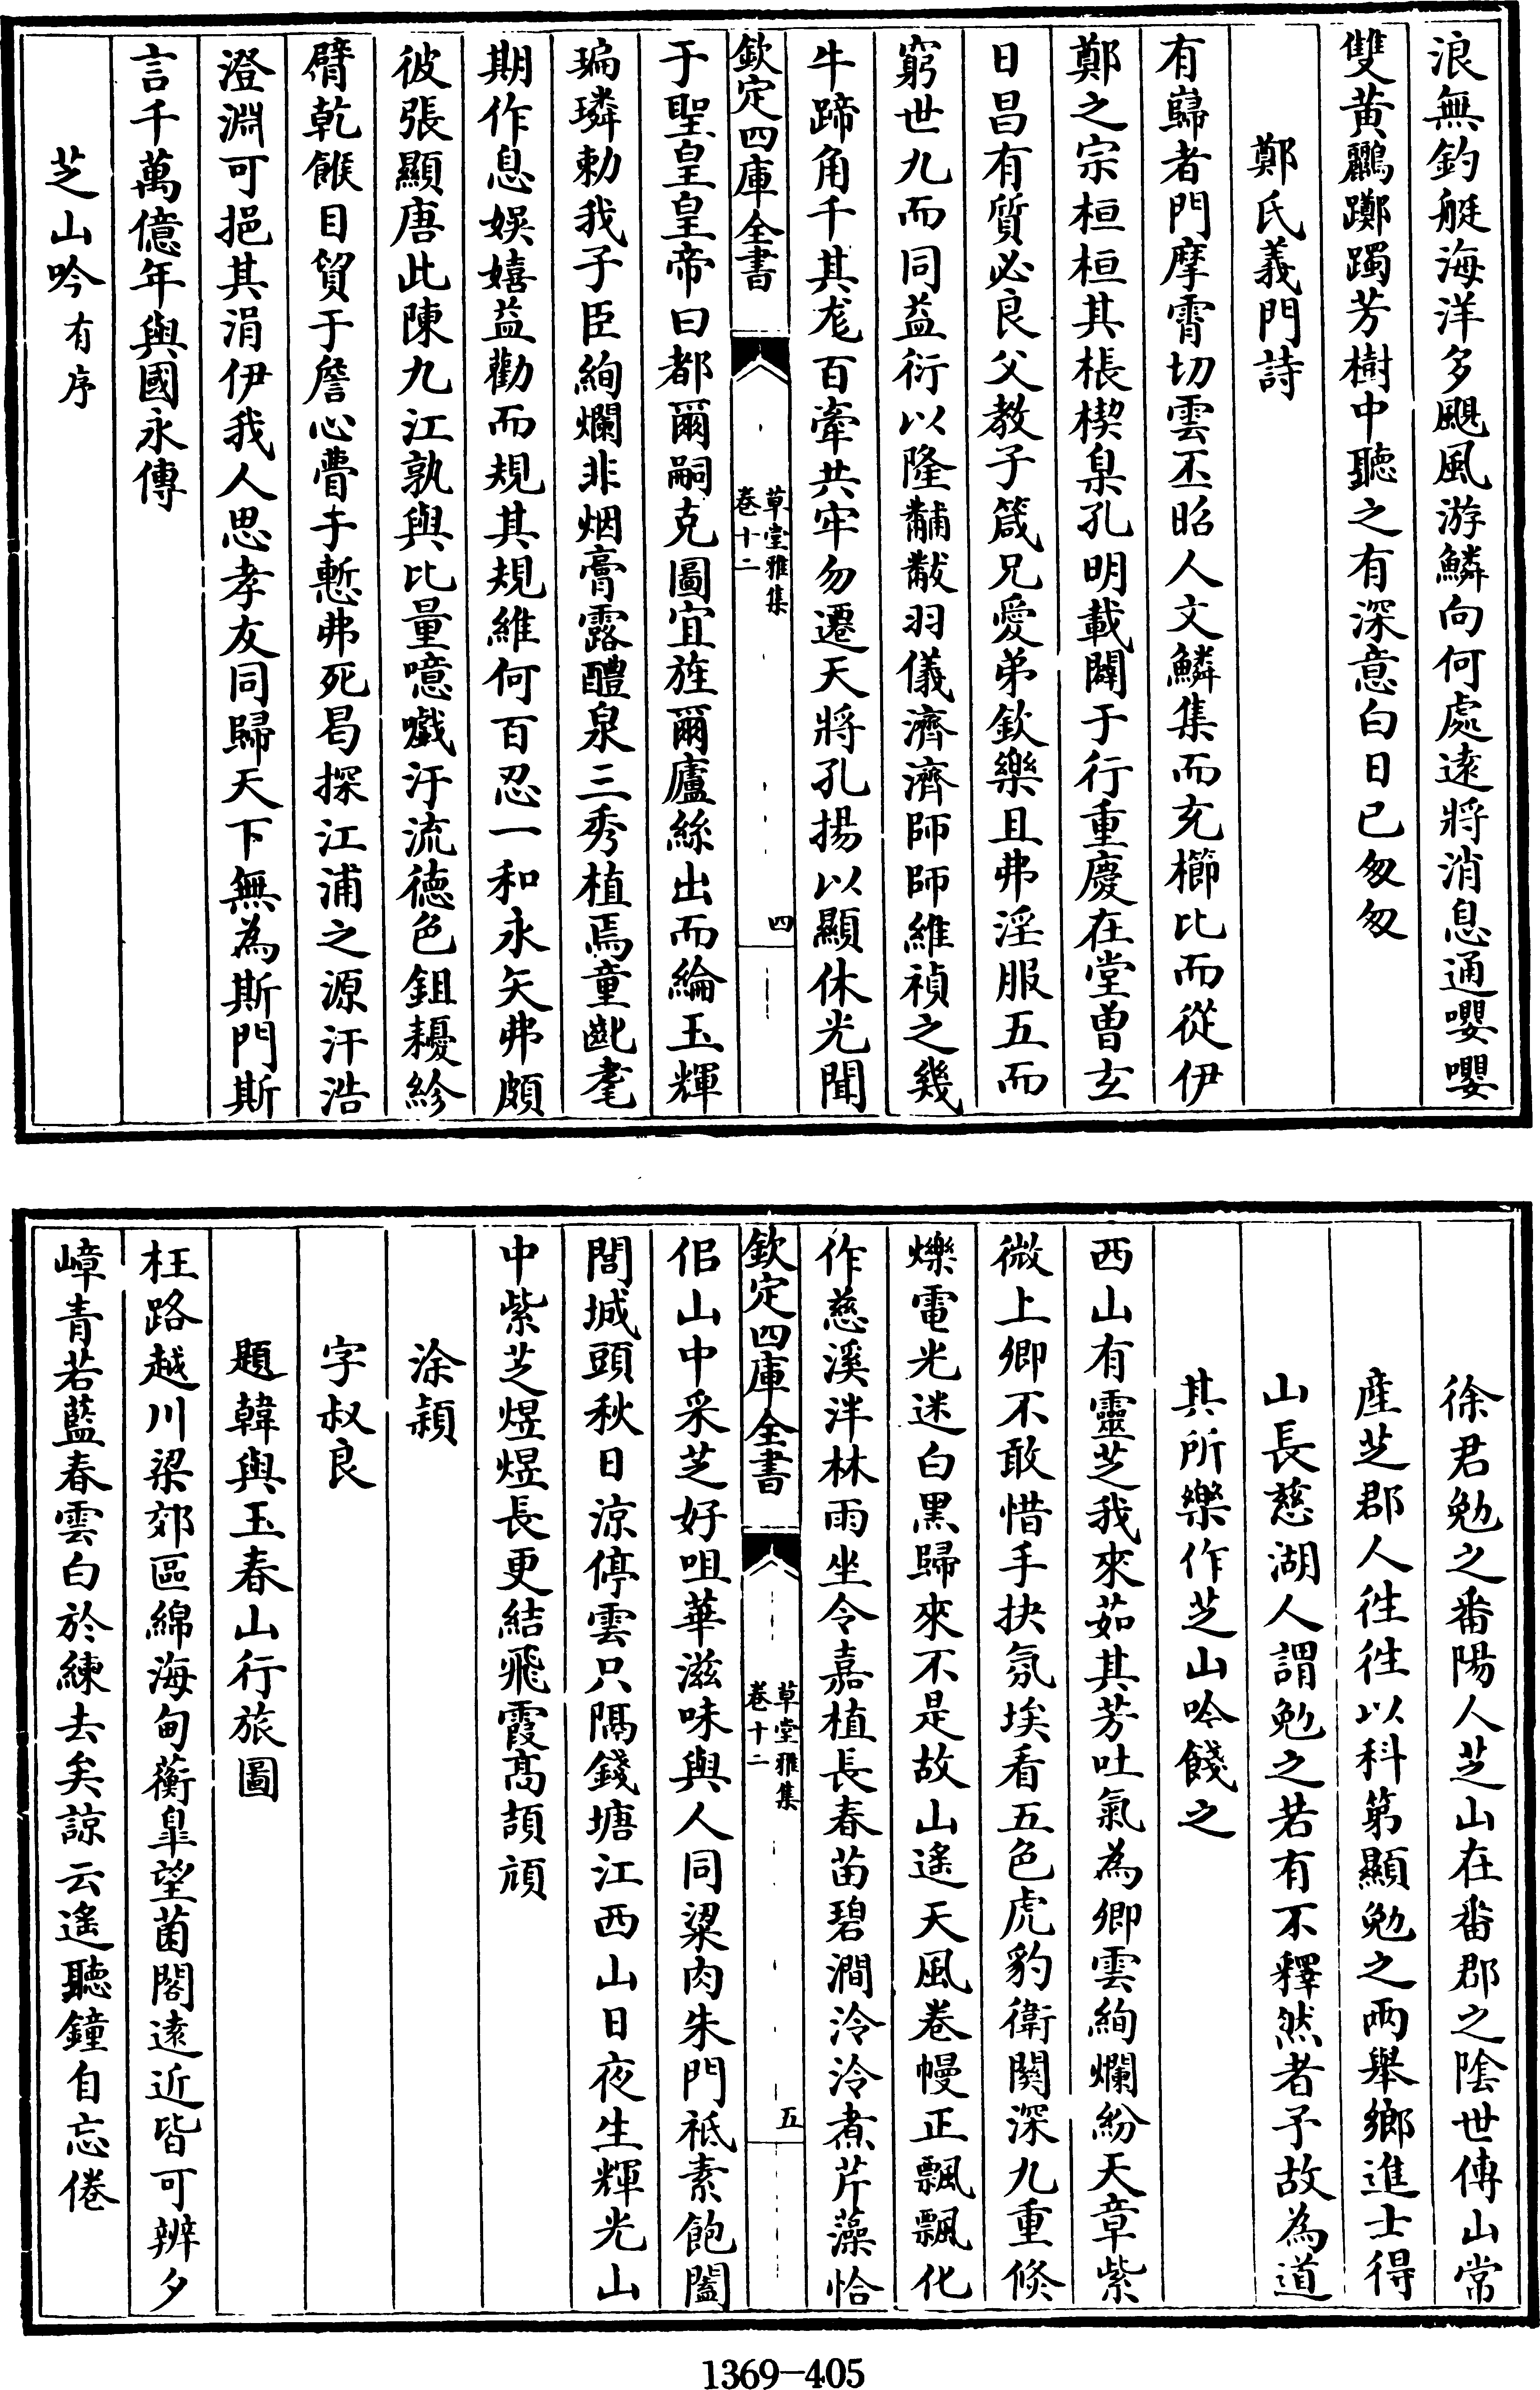 浪無釣艇海洋多颶風游鱗向何處逺將消息通嚶嚶
雙黄鸝躑躅芳樹中聽之有深意白日已匆匆
鄭氏義門詩
有巋者門摩霄切雲丕昭人文鱗集而充櫛比而從伊
鄭之宗桓桓其棖楔臬孔明載闢于行重慶在堂曽玄
日昌有質必良父教子箴兄愛弟欽樂且弗淫服五而
窮世九而同益衍以隆黼黻羽儀濟濟師師維禎之幾
牛蹄角千其尨百牽共牢勿遷天將孔揚以顯休光聞
欽定四庫全書
草堂雅集
卷十二
四
于聖皇皇帝曰都爾嗣克圖宜旌爾廬絲出而綸玉輝
瑞璘勅我子臣絢爛非烟膏露醴泉三秀植焉童齔耄
期作息娱嬉益勸而規其規維何百忍一和永矢弗頗
彼張顯唐此陳九江孰與比量噫嚱汙流徳色鉏耰紾
臂乾餱目貿于詹心瞢于慙弗死曷探江浦之源汗浩
澄淵可挹其涓伊我人思孝友同歸天下無為斯門斯
言千萬億年與國永傳
芝山吟有序
徐君勉之番陽人芝山在番郡之隂世傳山常
産芝郡人徃徃以科第顯勉之兩舉鄉進士得
山長慈湖人謂勉之若有不釋然者予故為道
其所樂作芝山吟餞之
西山有靈芝我來茹其芳吐氣為卿雲絢爛紛天章紫
微上卿不敢惜手抉氛埃看五色虎豹衛闗深九重倐
爍電光迷白黒歸來不是故山遙天風卷幔正飄飄化
作慈溪泮林雨坐令嘉植長春苗碧澗泠泠煮芹藻恰
欽定四庫全書
草堂雅集
卷十二
五
佀山中采芝好咀華滋味與人同粱肉朱門祗素飽闔
閭城頭秋日涼停雲只隔錢塘江西山日夜生輝光山
中紫芝煜煜長更結飛霞髙頡頏
涂頴
字叔良
題韓與玉春山行旅圖
枉路越川梁郊區綿海甸蘅臯望菌閣逺近皆可辨夕
嶂青若藍春雲白於練去矣諒云遙聽鐘自忘倦
1369-405